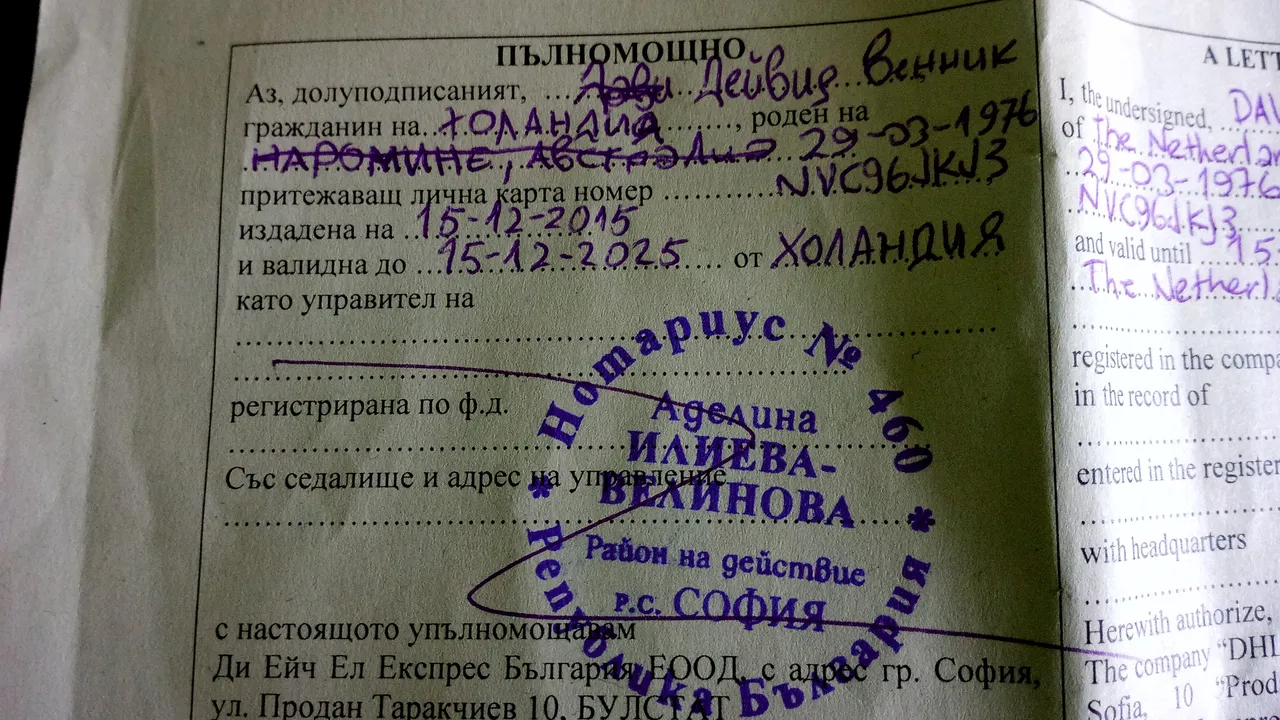 ПЪЛНОМОЩНО
Аз, долуподписаният, ... Дейвид Венник
гражданин на ХОЛАНДИЯ, роден на
НАРОМИНЕ, АВСТРАЛИЯ 29-03-1976
притежаващ лична карта номер NVC96JKJ3
издадена на 15-12-2015
и валидна до 15-12-2025 от ХОЛАНДИЯ
като управител на
регистрирана по ф.д.
Със седалище и адрес на управление
с настоящото упълномощавам
Ди Ейч Ел Експрес България ЕООД, с адрес гр. София,
ул. Продан Таракчиев 10, БУЛСТАТ
Нотариус № 460
Аделина
ИЛИЕВА-
ВЕЛИНОВА
Район на действие
Р.С. СОФИЯ
* Република България *
A LETT
I, the undersigned, DAV
of The Netherlan
29-03-1976
NVC96JKJ3
and valid until 15.
The Netherl
registered in the compa
in the record of
entered in the register
with headquarters
Herewith authorize,
The company "DHL
Sofia, 10 "Prod